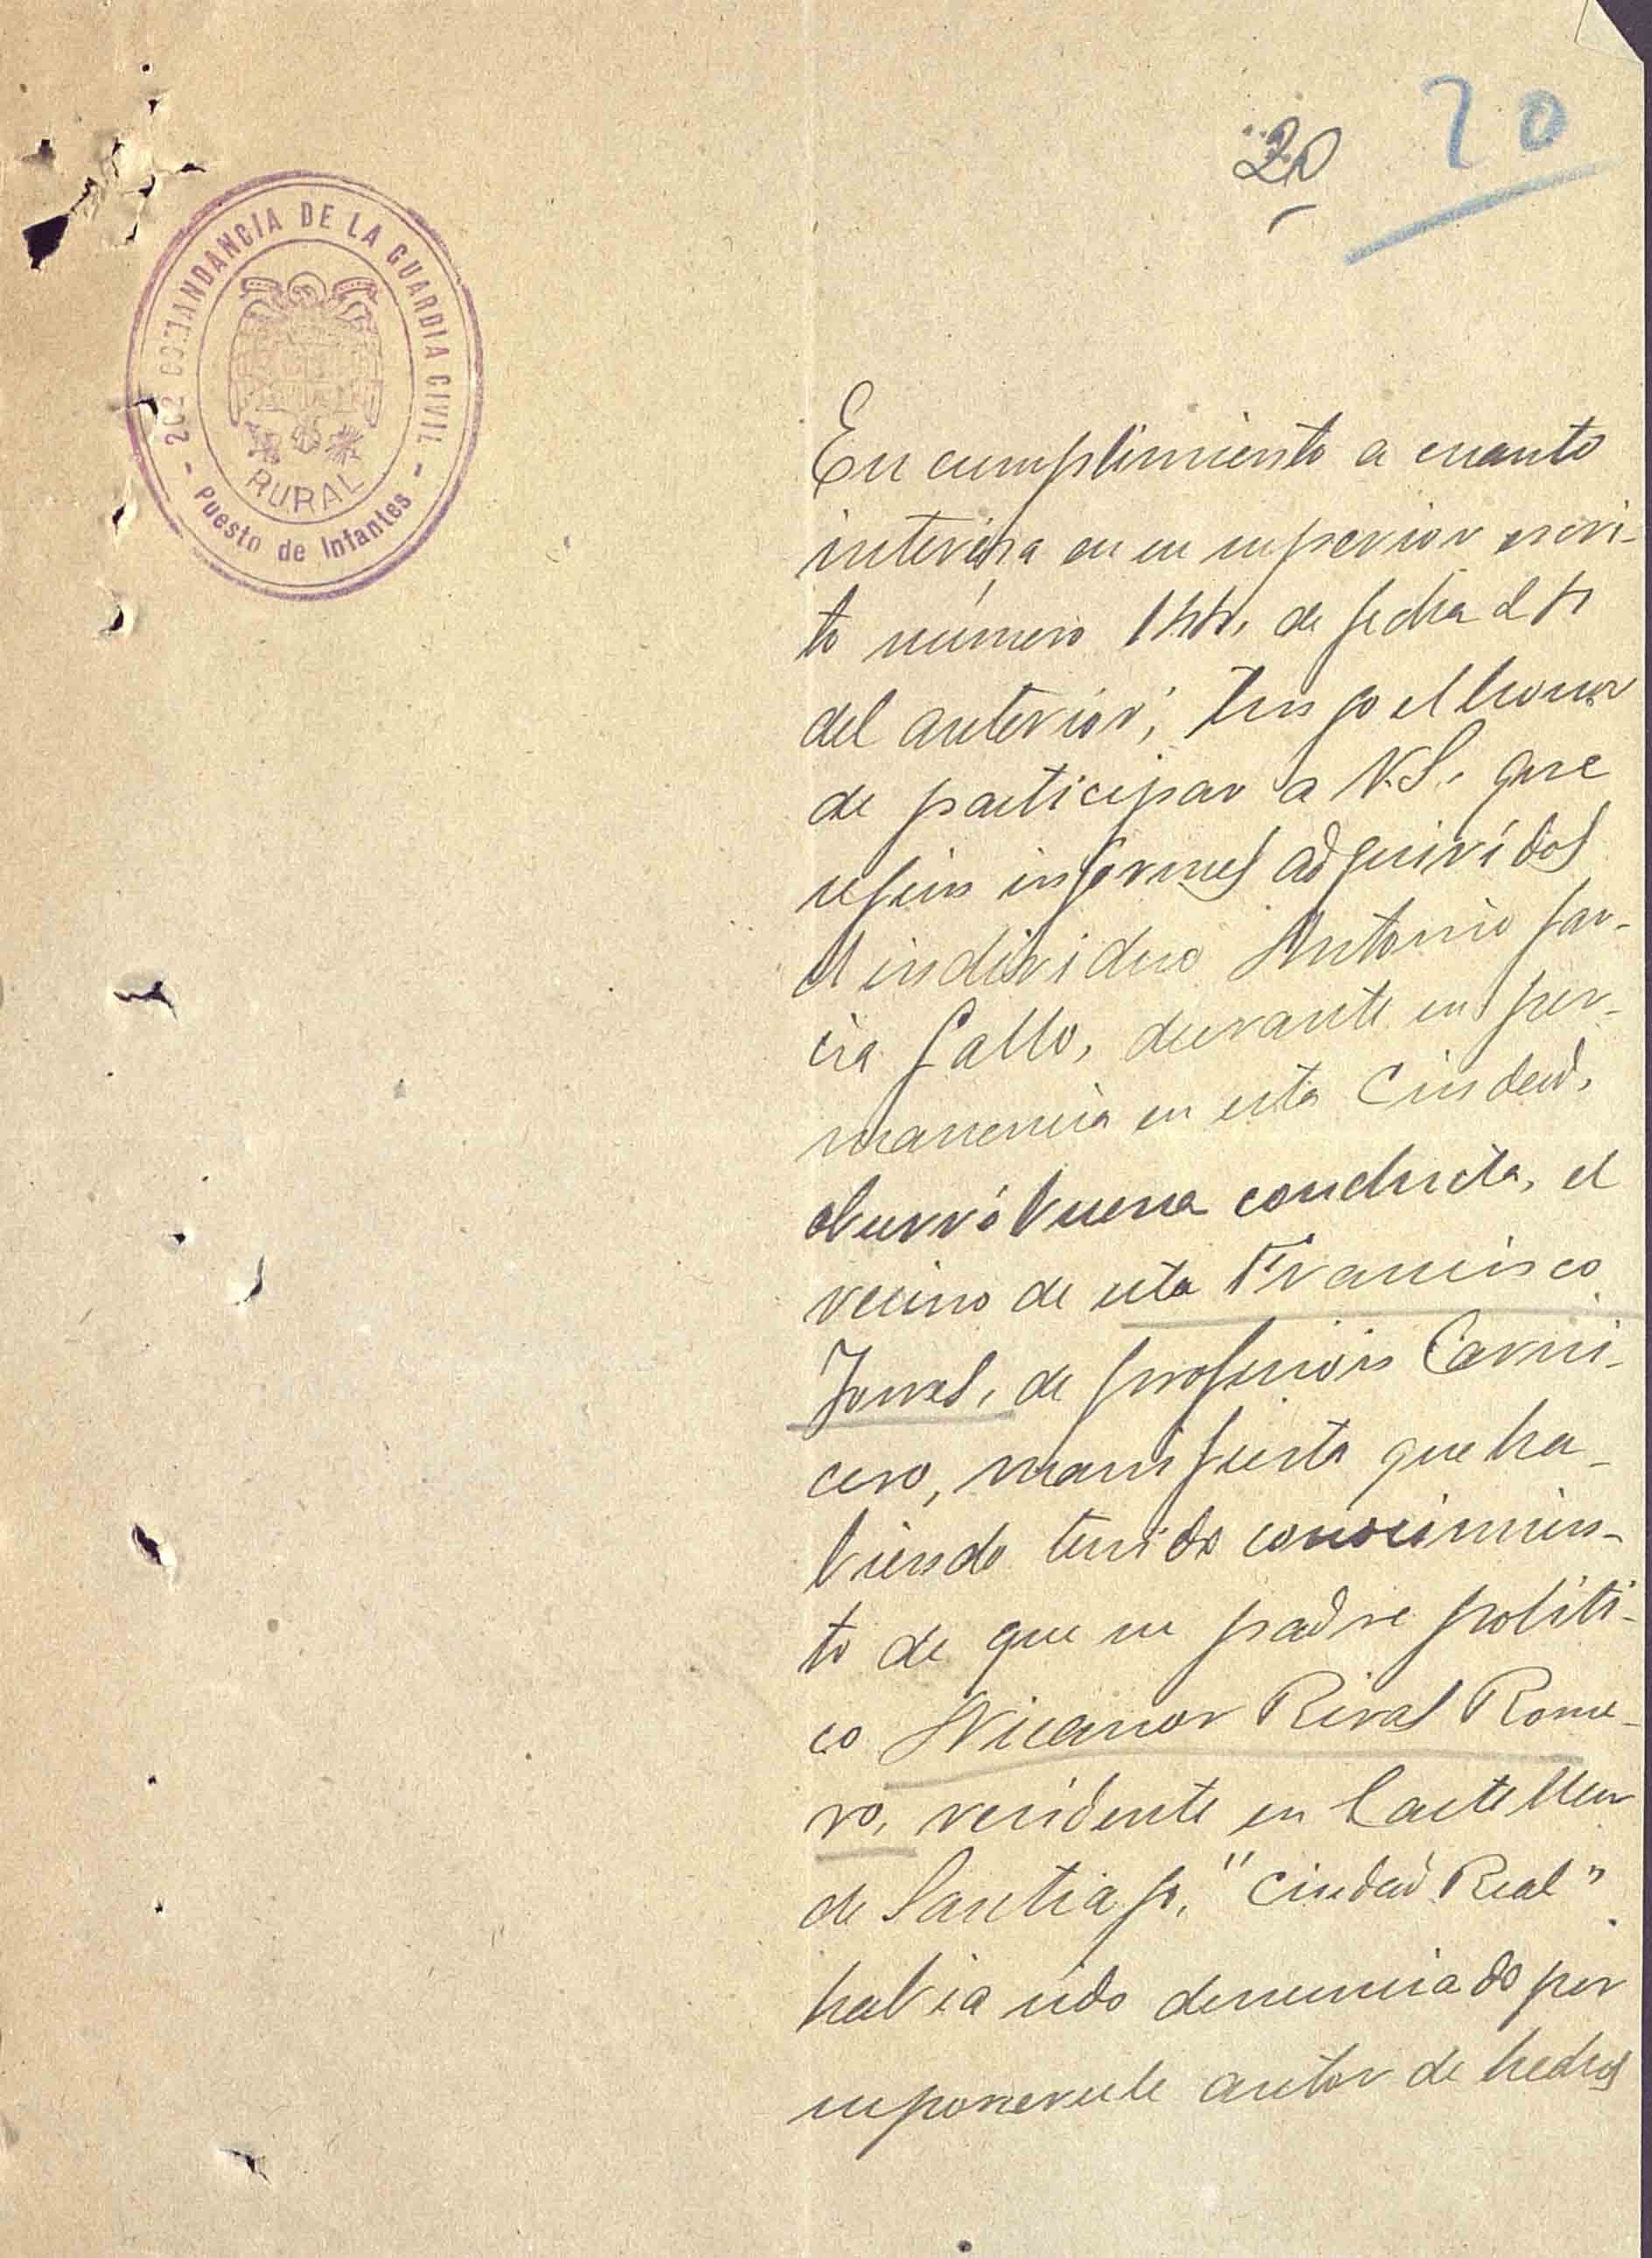 20 20
202 COMANDANCIA DE LA GUARDIA CIVIL
RURAL
- Puesto de Infantes -
En cumplimiento a cuanto
interesa en su superior escri-
to número de fecha
del anterior; tengo el honor
de participar a V.S. que
según informes adquiridos
el individuo Antonio Gar-
cia Gallo, durante su per-
manencia en esta Ciudad,
observó buena conducta, el
vecino de esta Francisco
de profesión Carni-
cero, manifiesta que ha-
biendo tenido conocimien-
to de que su padre politi-
co Nicanor Rivas Rome-
ro, residente en Castellar
de Santiago, "Ciudad Real"
habia sido denunciado por
suponersele autor de hechos